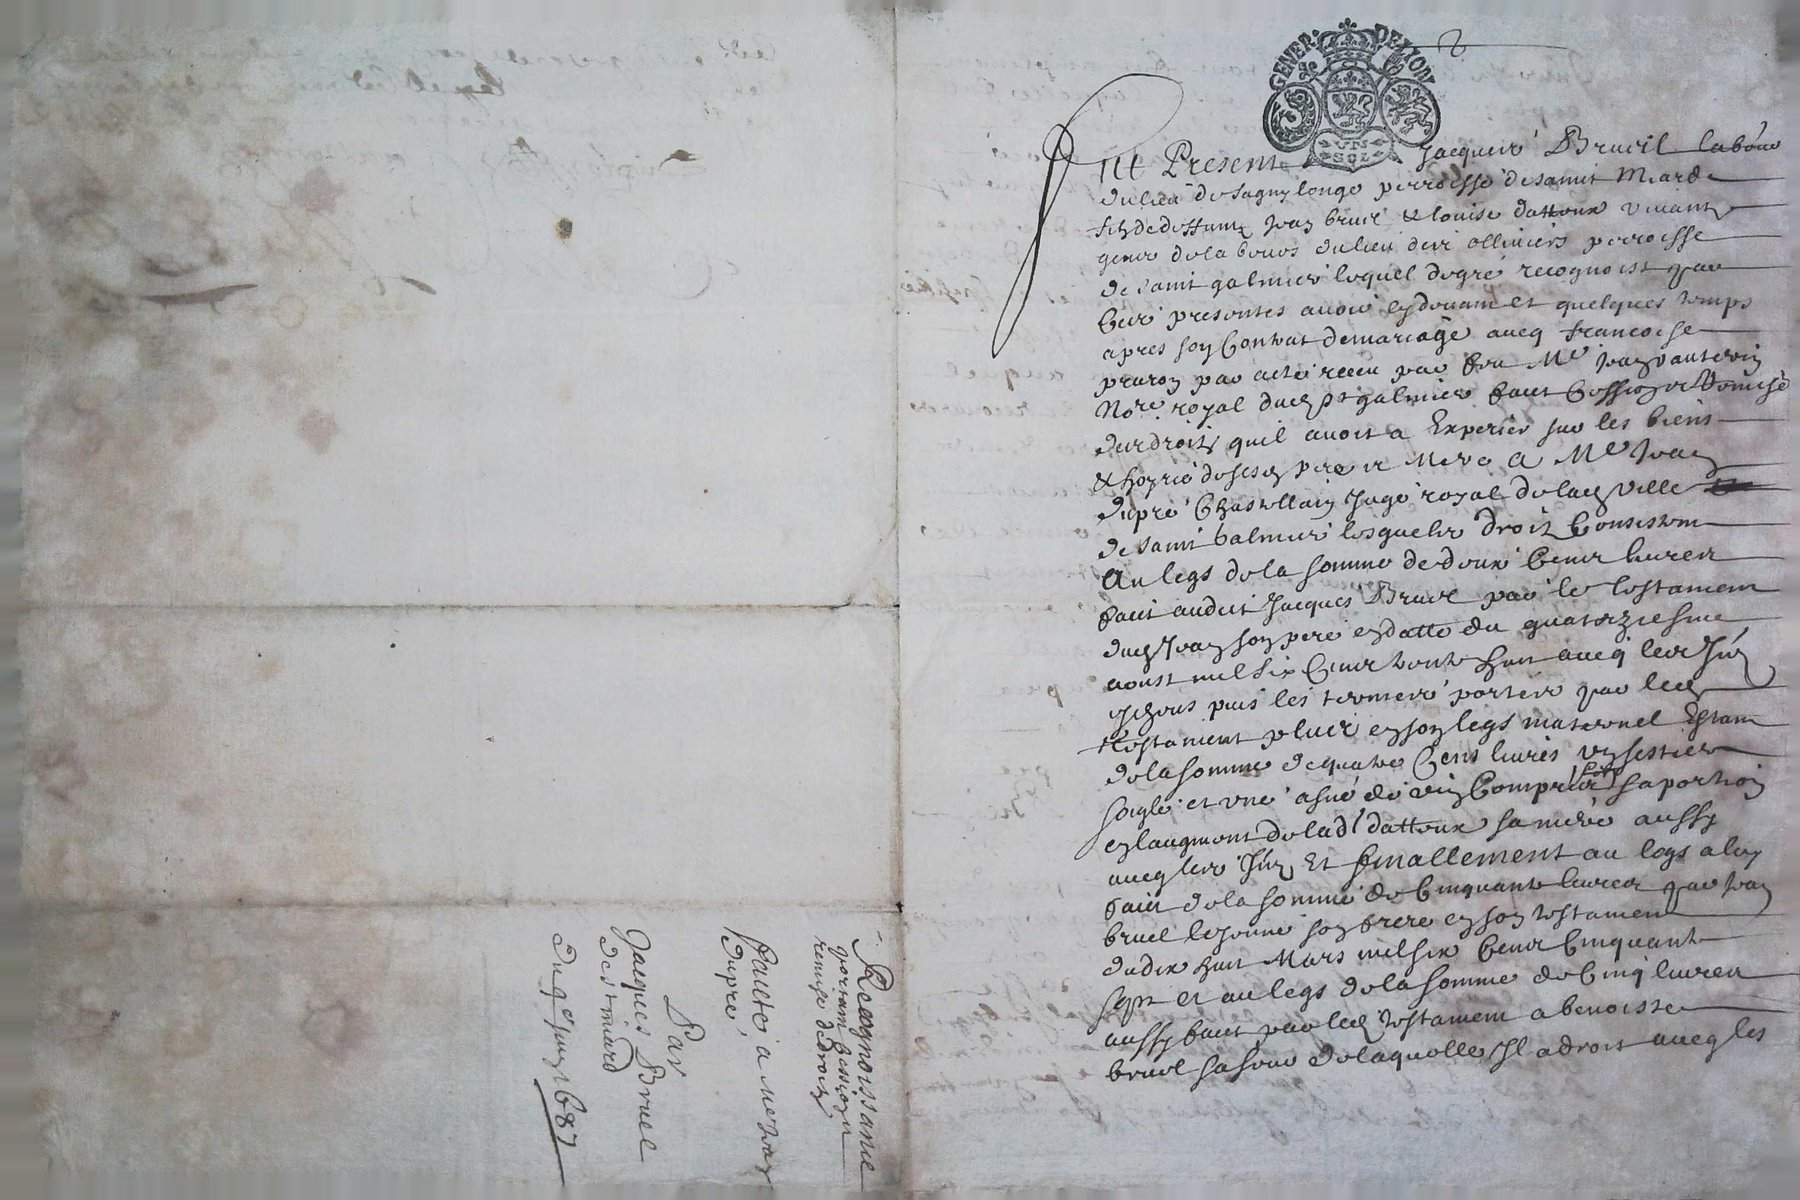 GENER. DE LION
UN
SOL
Fut Present Jacques Bruel labour
du lieu de Sagny longe perroisse de saint Miard
filz de deffuntz Jean bruel & louise dattoux vivantz
gens de labours du lieu des olliniers perroisse
de saint galmier lequel de gré recognoist par
ces presentes avoir cy devant et quelques temps
apres son contrat de mariage avecq francoise
praron par acte receu par feu Me Jean
Nore royal dud st galmier faict cession et remise
des droitz quil avoit a Experer sur les biens
& hoyrie de sesd pere et Mere a Me Jean
dupré Chastellain Juge royal de lad ville
de saint Galmier lesquels droitz Consistent
Au legs de la somme de deux Cens livres
faict audit Jacques Bruel par le testament
dud Jean son pere en datte du quatorziesme
aoust mil six Cens trente huit avecq les Inz
escheus puis les termes portés par led
testament plus en son legs maternel Estant
de la somme de quatre Cens livres un sestier
seigle et une asné de vin Compris sa portion
en laugment de lad dattoux sa mere aussy
avecq les Inz Et finallement au legs a luy
faict de la somme de Cinquante livres par Jean
bruel le jeune son frere en son testament
du dix huit Mars mil six Cens Cinquante
sept et au legs de la somme de Cinq livres
aussy faict par led testament a benoiste
bruel sa soeur de laquelle Il a droit avecq les
Recognoissance
portant cession et
remise de droitz
faicte a Me Jean
Dupré
Par
Jacques Bruel
de st miard
Du 9e Janv 1687